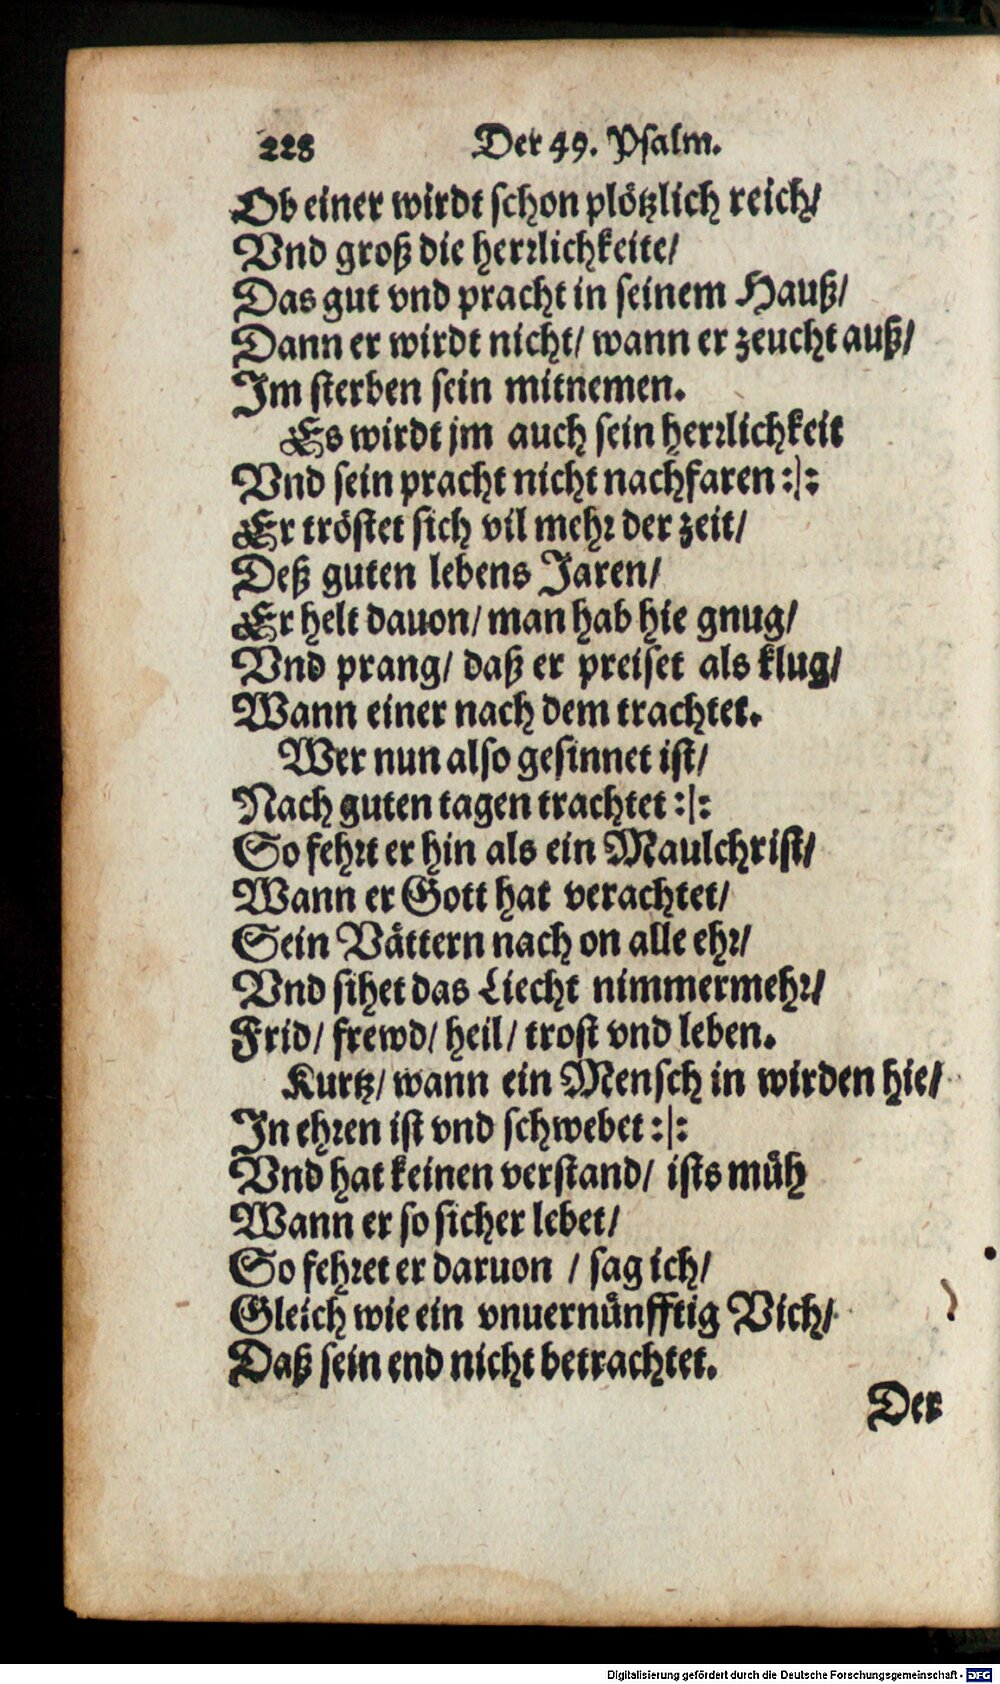 228 Der 49. Psalm.
Ob einer wirdt schon plötzlich reich/
Vnd groß die herrlichkeite/
Das gut vnd pracht in seinem Hauß/
Dann er wirdt nicht/ wann er zeucht auß/
Im sterben sein mitnemen.
Es wirdt jm auch sein herrlichkeit
Vnd sein pracht nicht nachfaren :|:
Er tröstet sich vil mehr der zeit/
Deß guten lebens Jaren/
Er helt dauon/ man hab hie gnug/
Vnd prang/ daß er preiset als klug/
Wann einer nach dem trachtet.
Wer nun also gesinnet ist/
Nach guten tagen trachtet :|:
So fehrt er hin als ein Maulchrist/
Wann er Gott hat verachtet/
Sein Vättern nach on alle ehr/
Vnd sihet das Liecht nimmermehr/
Frid/ frewd/ heil/ trost vnd leben.
Kurtz/ wann ein Mensch in wirden hie/
In ehren ist vnd schwebet :|:
Vnd hat keinen verstand/ ists müh
Wann er so sicher lebet/
So fehret er daruon / sag ich/
Gleich wie ein vnuernünfftig Vich/
Daß sein end nicht betrachtet.
Der
Digitalisierung gefördert durch die Deutsche Forschungsgemeinschaft - DFG